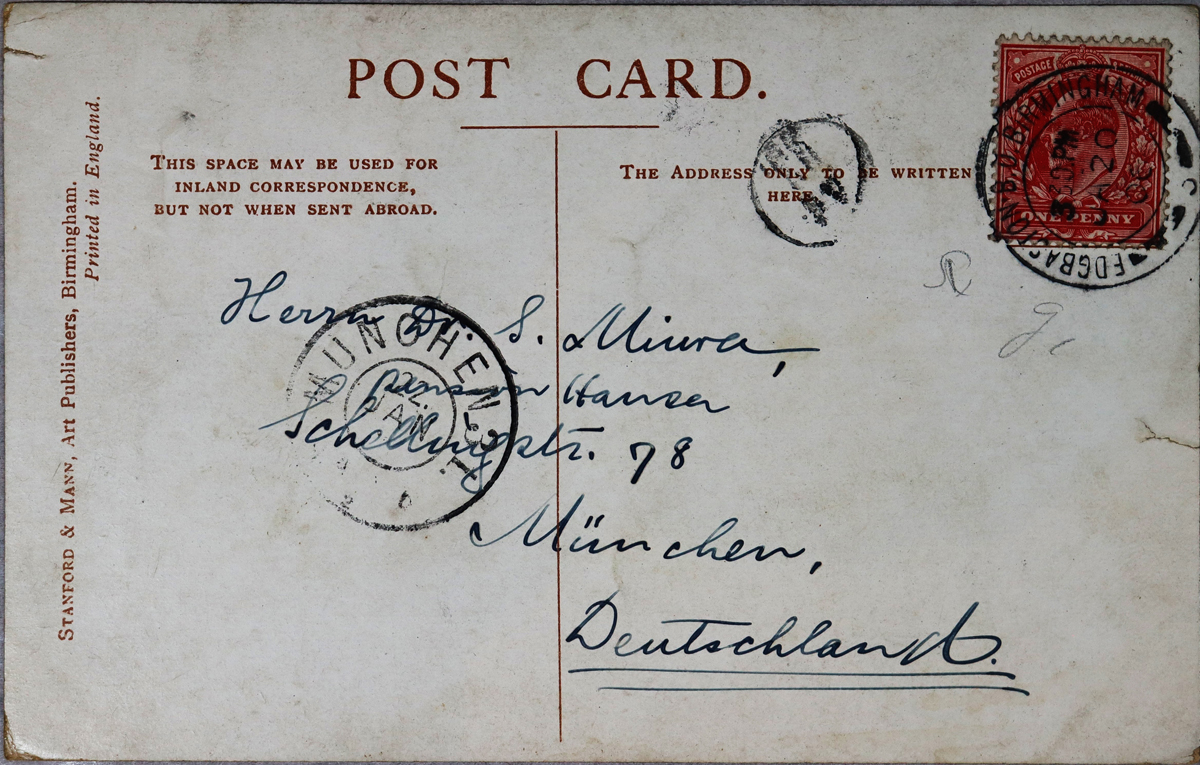 POST CARD.
THIS SPACE MAY BE USED FOR
INLAND CORRESPONDENCE,
BUT NOT WHEN SENT ABROAD.
THE ADDRESS ONLY TO BE WRITTEN
HERE.
STANFORD & MANN, Art Publishers, Birmingham.
Printed in England.
POSTAGE
ONE PENNY
EDGBASTON B.O BIRMINGHAM
JA 20
06
Herrn Dr. S. Miura,
Pension Hauser
Schellingstr. 78
München,
Deutschland.
MUNCHEN
22.
JAN